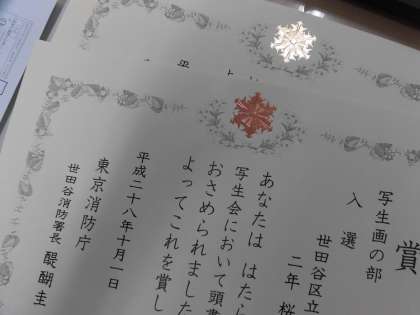 賞
写生画の部
入選
世田谷区立
二年 桜
あなたは はたら
写生会において頭書
おさめられました
よってこれを賞し
平成二十八年十月一日
東京消防庁
世田谷消防署長 醍醐圭
平